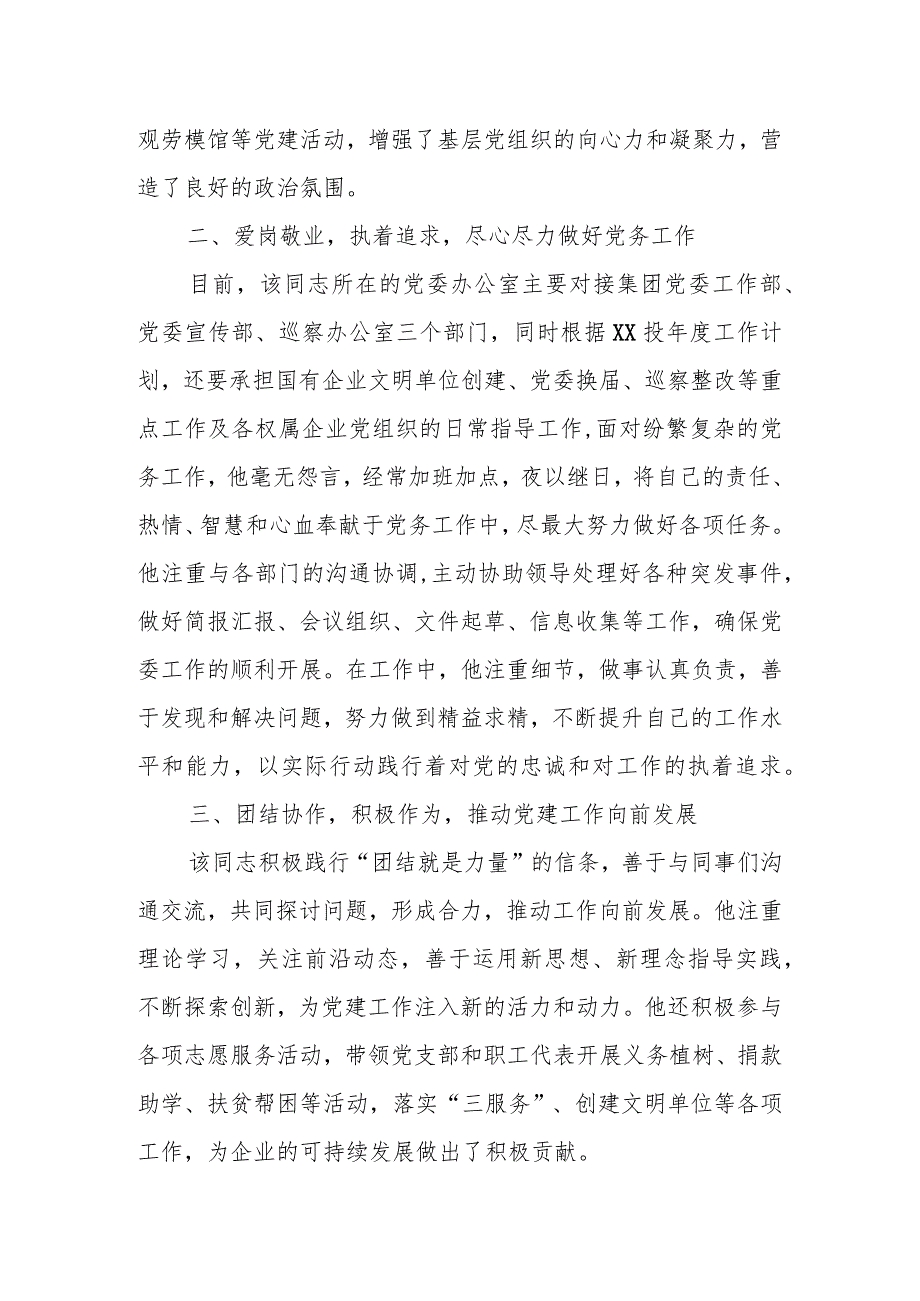 观劳模馆等党建活动，增强了基层党组织的向心力和凝聚力，营
造了良好的政治氛围。
二、爱岗敬业，执着追求，尽心尽力做好党务工作
目前，该同志所在的党委办公室主要对接集团党委工作部、
党委宣传部、巡察办公室三个部门，同时根据 XX 投年度工作计
划，还要承担国有企业文明单位创建、党委换届、巡察整改等重
点工作及各权属企业党组织的日常指导工作,面对纷繁复杂的党
务工作，他毫无怨言，经常加班加点，夜以继日，将自己的责任、
热情、智慧和心血奉献于党务工作中，尽最大努力做好各项任务。
他注重与各部门的沟通协调,主动协助领导处理好各种突发事件，
做好简报汇报、会议组织、文件起草、信息收集等工作，确保党
委工作的顺利开展。在工作中，他注重细节，做事认真负责，善
于发现和解决问题，努力做到精益求精，不断提升自己的工作水
平和能力，以实际行动践行着对党的忠诚和对工作的执着追求。
三、团结协作，积极作为，推动党建工作向前发展
该同志积极践行“团结就是力量”的信条，善于与同事们沟
通交流，共同探讨问题，形成合力，推动工作向前发展。他注重
理论学习，关注前沿动态，善于运用新思想、新理念指导实践，
不断探索创新，为党建工作注入新的活力和动力。他还积极参与
各项志愿服务活动，带领党支部和职工代表开展义务植树、捐款
助学、扶贫帮困等活动，落实“三服务”、创建文明单位等各项
工作，为企业的可持续发展做出了积极贡献。